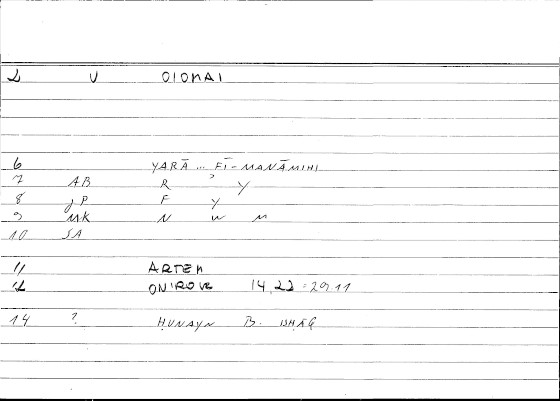 2 V OIOMAI
6 YARĀ ... FĪ-MANĀMIHI
7 AB R ʾ Y
8 JP F Y
9 MK N W M
10 SA
11 ARTEM
12 ONIROCR 14,22 = 29,11
14 ? ḤUNAYN B. ISḤĀQ